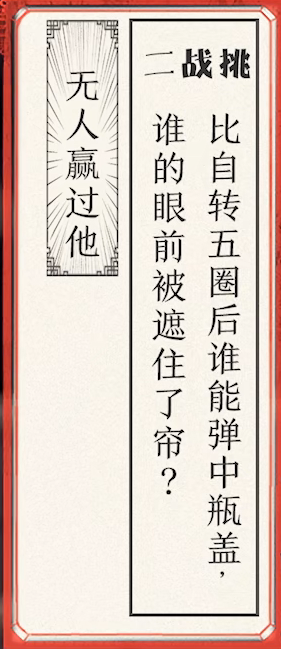 挑战二
比自转五圈后谁能弹中瓶盖，
谁的眼前被遮住了帘？
无人赢过他